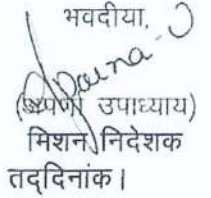 भवदीया,
Aparna U
(अपर्णा उपाध्याय)
मिशन निदेशक
तद्दिनांक।